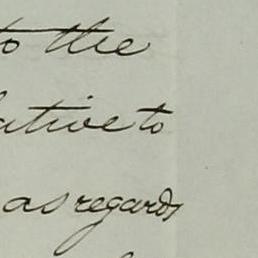 to the
lative to
as regards